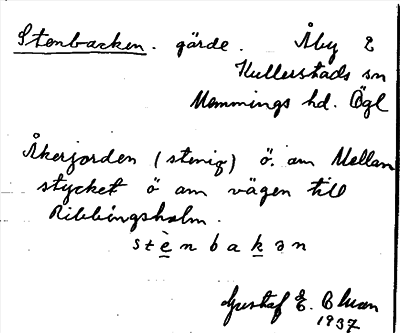 Stenbacken. gärde. Åby 2
Kullerstads sn
Memmings hd. Ögl
Åkerjorden (stenig) ö. om Mellan
stycket ö om vägen till
Ribbingsholm.
stènbakən
Gustaf E. Elman
1937